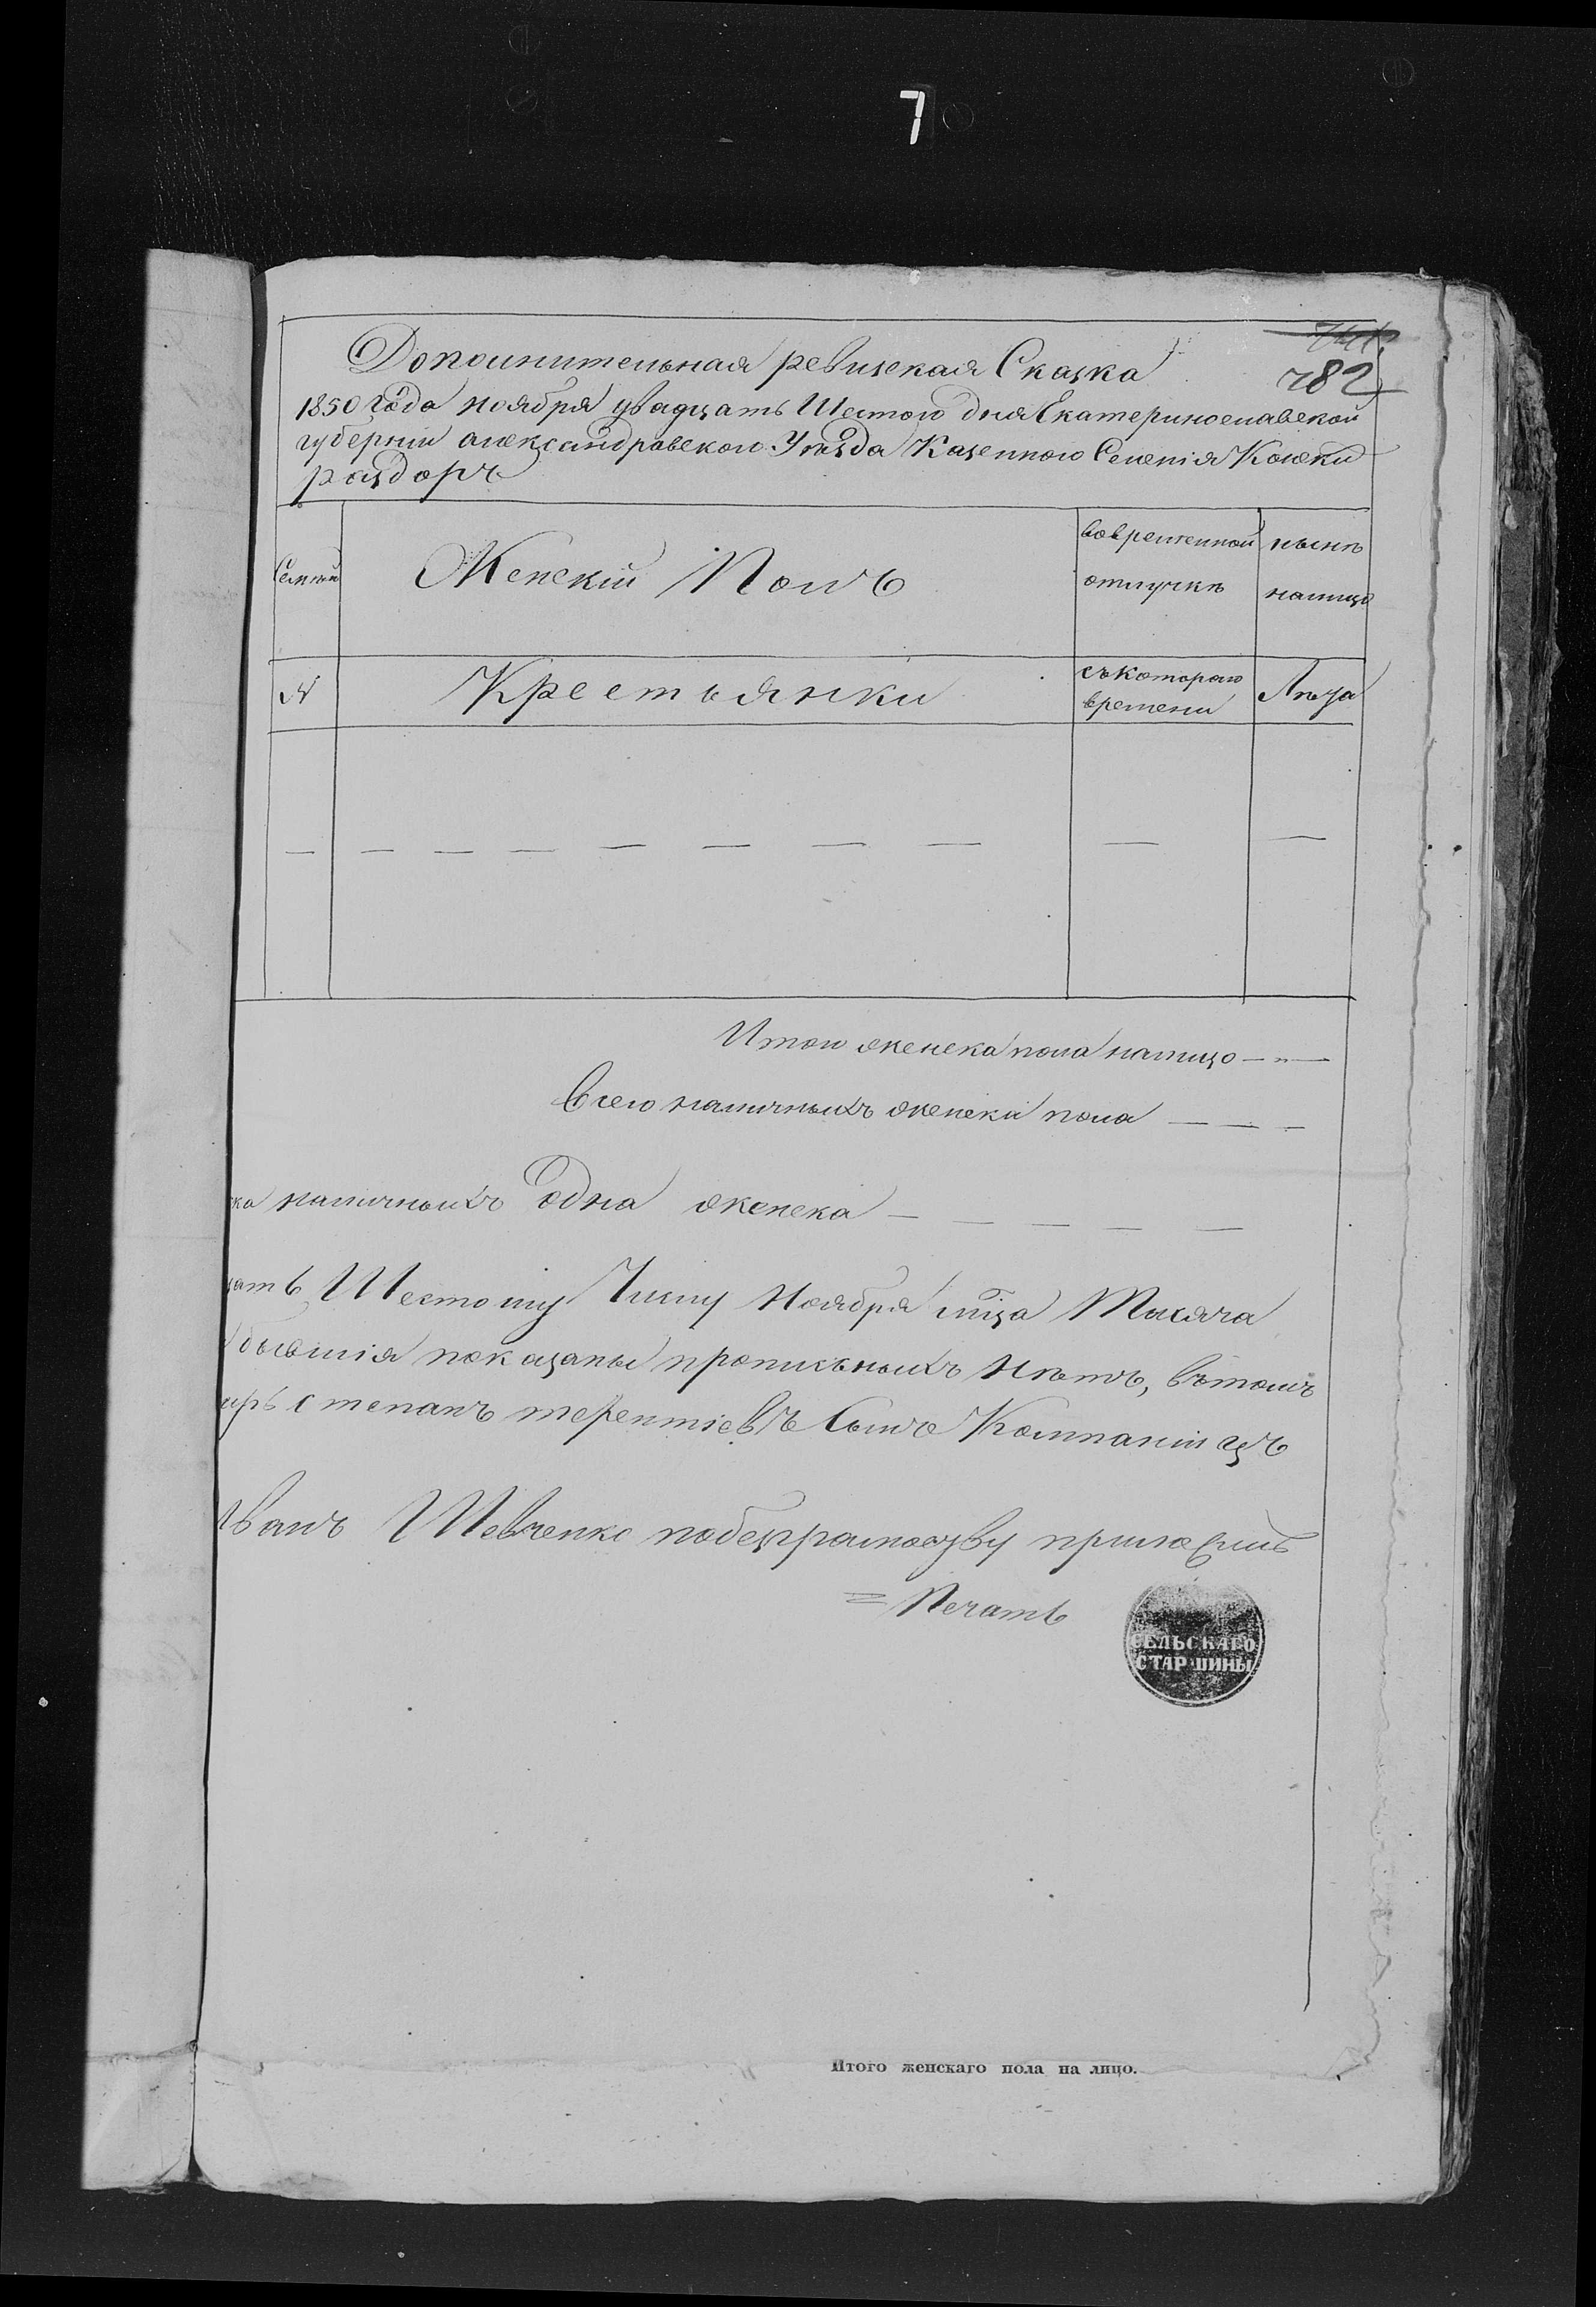 7
782
Дополнительная ревизская Сказка
1850 года ноября двадцать Шестого дня Екатеринославской
губернии александровского Уезда Казенного Селенія Конски
раздоръ
Семьи
Женскій Полъ
вовременной
отлучкѣ
нынѣ
налицо
№
Крестьянки
съкотораго
времени
Лѣта
Итого женска пола налицо — „ —
Всего наличныхъ женска пола — — —
ка наличныхъ одна женска — — — — —
цать Шестому Числу Ноября мца Тысяча
бывшія показаны прописныхъ нѣтъ, вътомъ
арь степанъ терентіевъ Сынъ Компаніецъ
Иванъ Шевченко побезграмотству приложилъ
= Печать
СЕЛЬСКАГО
СТАРШИНЫ
Итого женскаго пола на лицо.